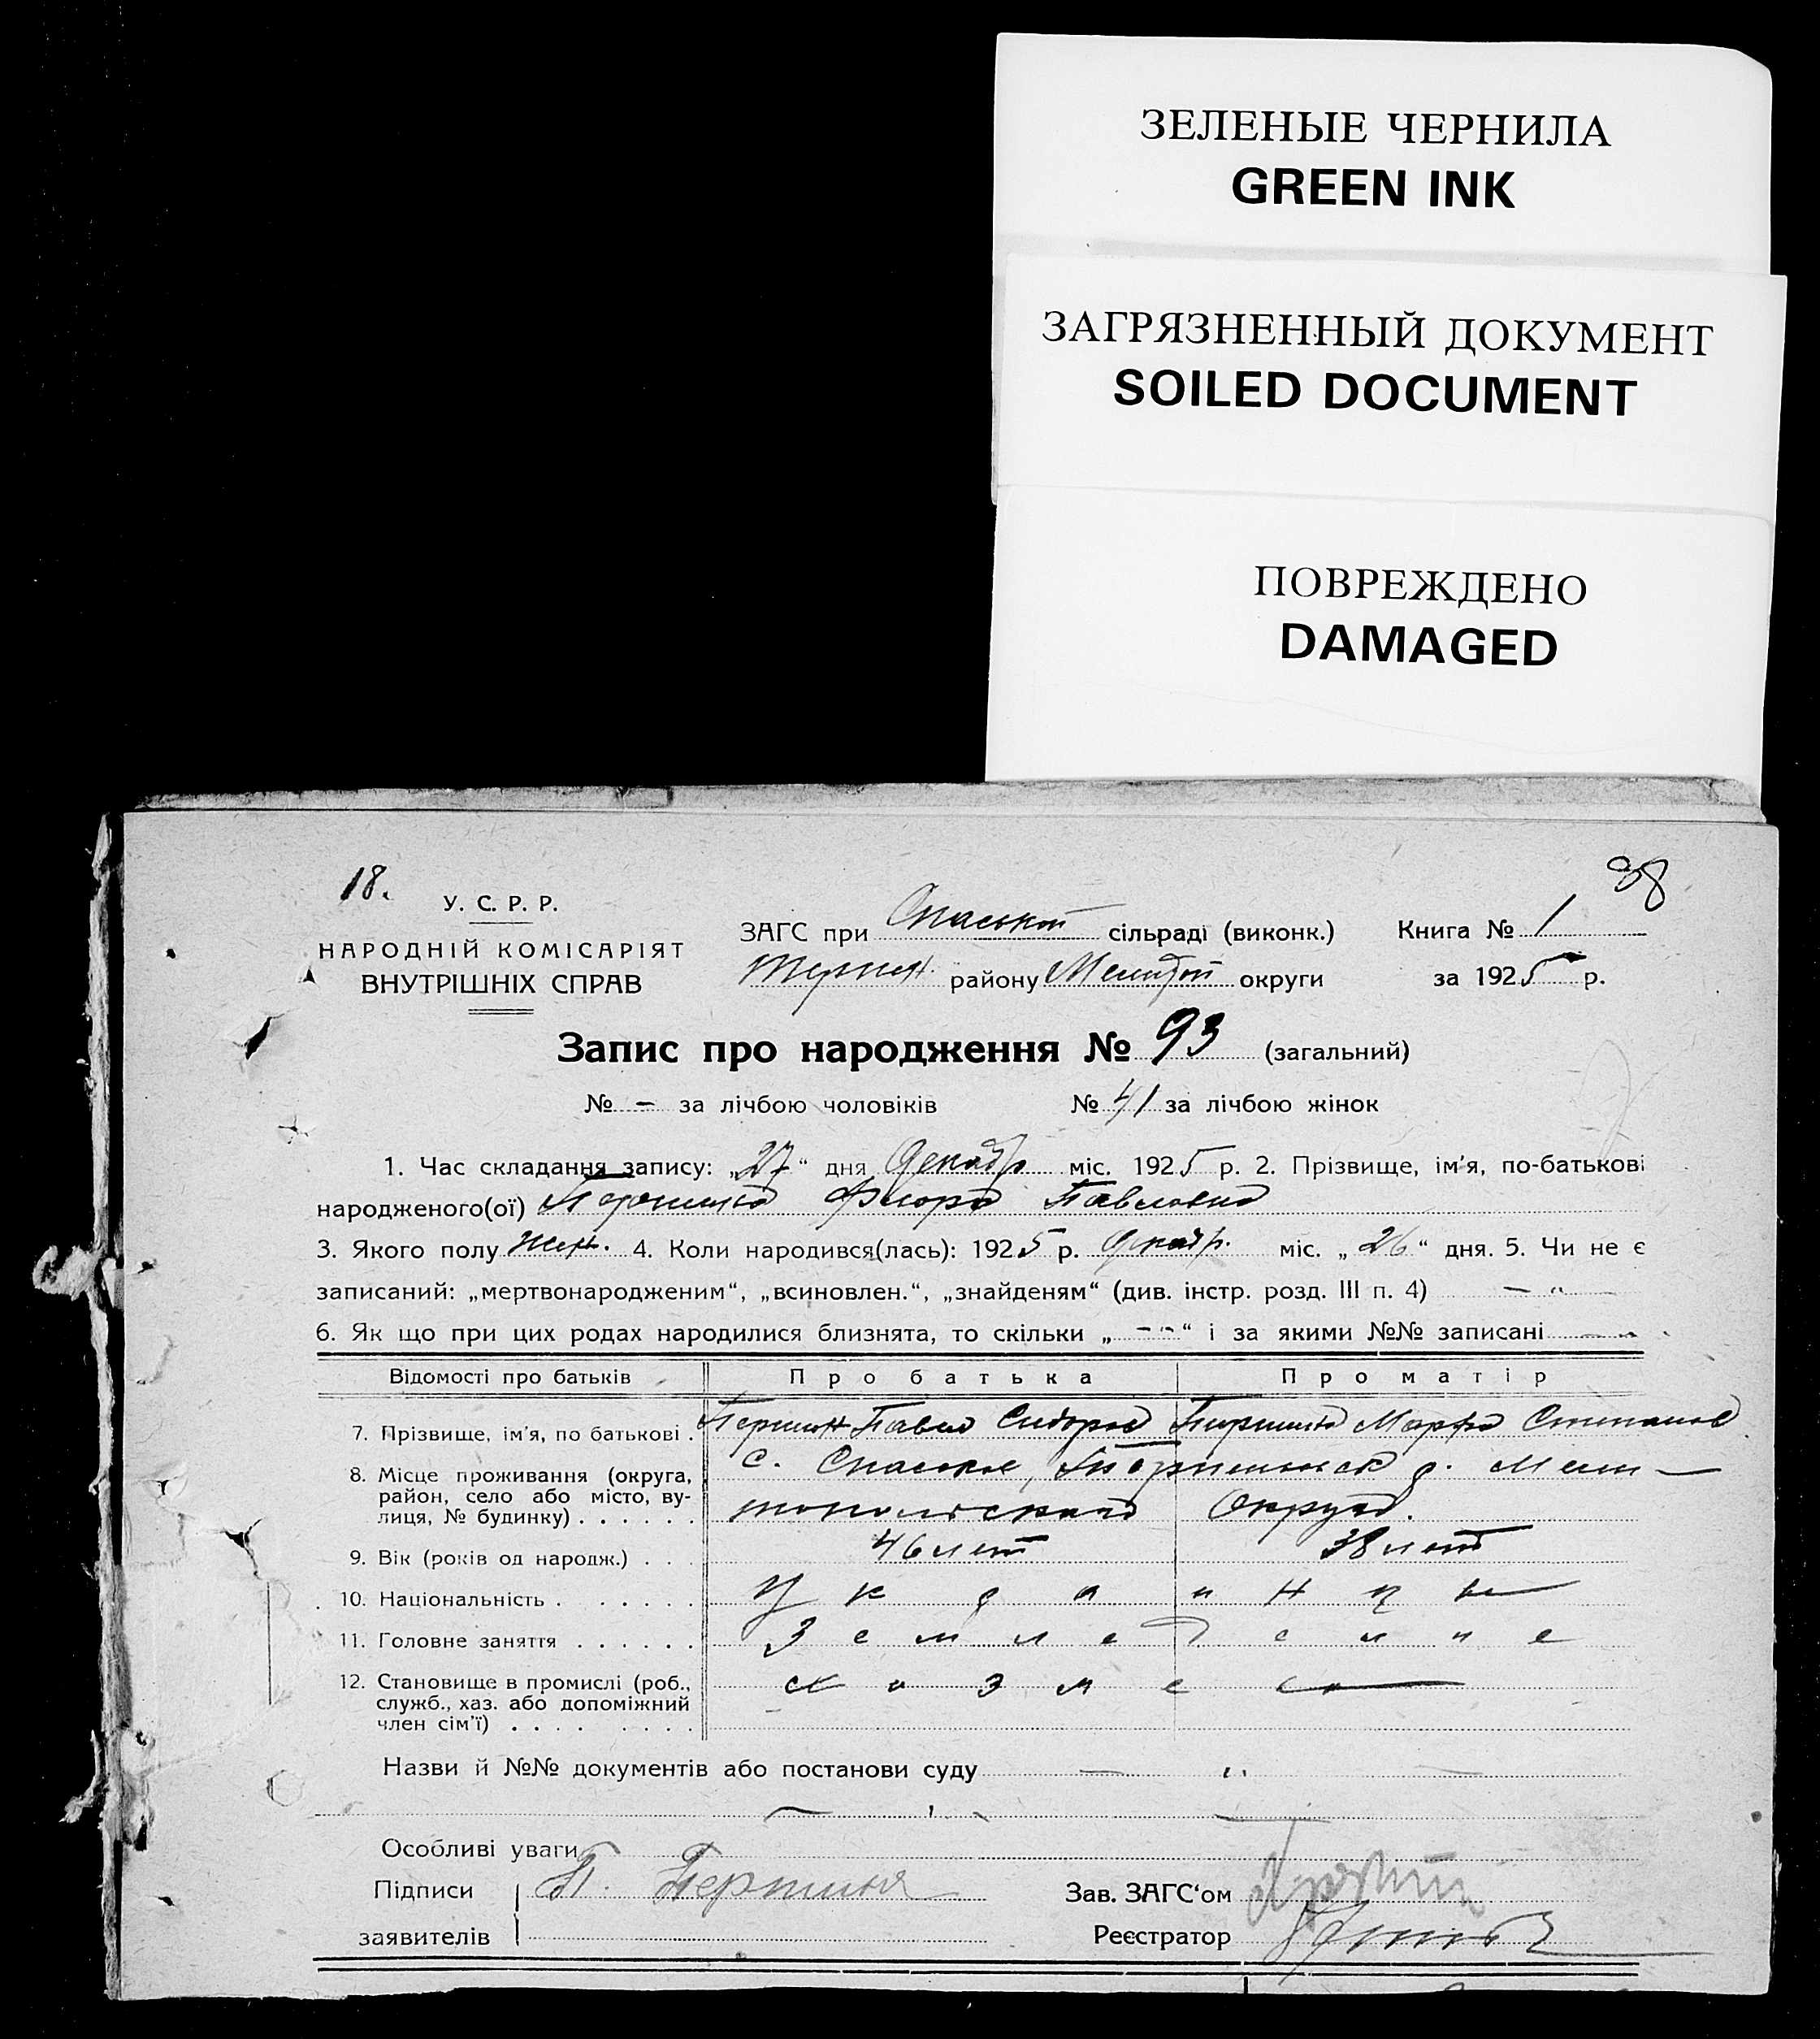 ЗЕЛЕНЫЕ ЧЕРНИЛА
GREEN INK
ЗАГРЯЗНЕННЫЙ ДОКУМЕНТ
SOILED DOCUMENT
ПОВРЕЖДЕНО
DAMAGED
18.
38
У. С. Р. Р.
НАРОДНІЙ КОМІСАРІЯТ
ВНУТРІШНІХ СПРАВ
ЗАГС при Спаськой сільраді (виконк.) Книга № 1
району округи за 1925 р.
Запис про народження № 93 (загальний)
№ - за лічбою чоловіків № 41 за лічбою жінок
1. Час складання запису: „27“ дня Декабр міс. 1925 р. 2. Прізвище, ім'я, по-батькові
народженого(ої) Павловна
3. Якого полу жен. 4. Коли народився(лась): 1925 р. Декабр. міс. „26“ дня. 5. Чи не є
записаний: „мертвонародженим“, „всиновлен.“, „знайденям“ (див. інстр. розд. III п. 4) — „
6. Як що при цих родах народилися близнята, то скільки „ - - “ і за якими №№ записані — „
Відомості про батьків Про батька Про матір
7. Прізвище, ім'я, по батькові . Павел Сидоров Марфа Степанов
8. Місце проживання (округа, район, село або місто, вулиця, № будинку) . . . . . . с. Спаское, р. Мели-
топольской Округа.
9. Вік (років од народж.) . . 46 лет 38 лет
10. Національність . . . . . . Украинцы
11. Головне заняття . . . . . . Земледелие
12. Становище в промислі (роб.,
служб., хаз. або допоміжний
член сім'ї) . . . . . . . .
Назви й №№ документів або постанови суду — „ —
Особливі уваги
Підписи П. Зав. ЗАГС'ом
заявителів Реєстратор